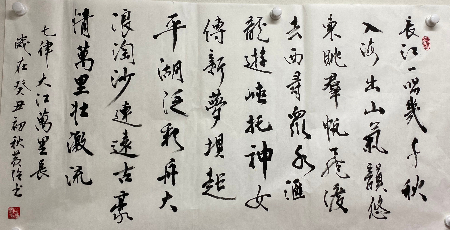 長江一唱幾千秋
入海出山氣韻悠
東眺羣帆飛渡
去西尋眾水匯
龍遊峽托神女
傳新夢壩起
平湖泛彩舟大
浪淘沙連遠古豪
情萬里壯激流
七律大江萬里長
歲在癸丑初秋